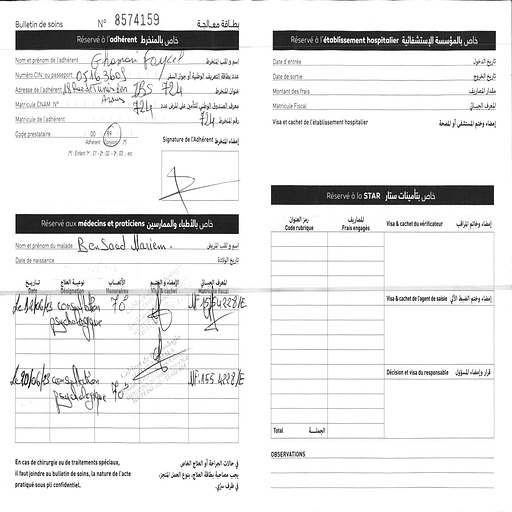 Bulletin de soins N° 8574159 بطاقة معالجة
Réservé à l'adhérent خاص بالمنخرط
Nom et prénom de l'adhérent Ghanmi Fayçel اسم و لقب المنخرط
Numéro CIN, ou passeport 05163609 عدد بطاقة التعريف الوطنية أو جواز السفر
Adresse de l'adhérent عنوان المنخرط
Matricule CNAM N° 724 معرف الصندوق الوطني للتأمين على المرض عدد
Matricule de l'adhérent 724 رقم المنخرط
Code prestataire 00 99
Adhérent Conjoint
Signature de l'Adhérent إمضاء المنخرط
Réservé aux médecins et praticiens خاص بالأطباء والممارسين
Nom et prénom du malade Ben Saad Mariem. اسم و لقب المريض
Date de naissance تاريخ الولادة
تاريخ نوعية العلاج الأتعاب الإمضاء و الختم المعرف الجبائي
Date Désignation Honoraires Visa & cachet Matricule fiscal
consultation 70
psychologique
consultation 70
psychologique
En cas de chirurgie ou de traitements spéciaux,
il faut joindre au bulletin de soins, la nature de l'acte
pratiqué sous pli confidentiel.
في حالات الجراحة أو العلاج الخاص
يجب مصاحبة بطاقة العلاج، بنوع العمل المنجز،
في ظرف سري.
Réservé à l'établissement hospitalier خاص بالمؤسسة الإستشفائية
Date d'entrée تاريخ الدخول
Date de sortie تاريخ الخروج
Montant des frais مقدار المصاريف
Matricule Fiscal المعرف الجبائي
Visa et cachet de l'établissement hospitalier إمضاء وختم المستشفى أو المصحة
Réservé à la STAR خاص بتأمينات ستار
رمز العنوان المصاريف
Code rubrique Frais engagés
Visa & cachet du vérificateur إمضاء وخاتم المراقب
Visa & cachet de l'agent de saisie إمضاء وختم الضبط الآلي
Décision et visa du responsable قرار وإمضاء المسؤول
Total الجملة
OBSERVATIONS